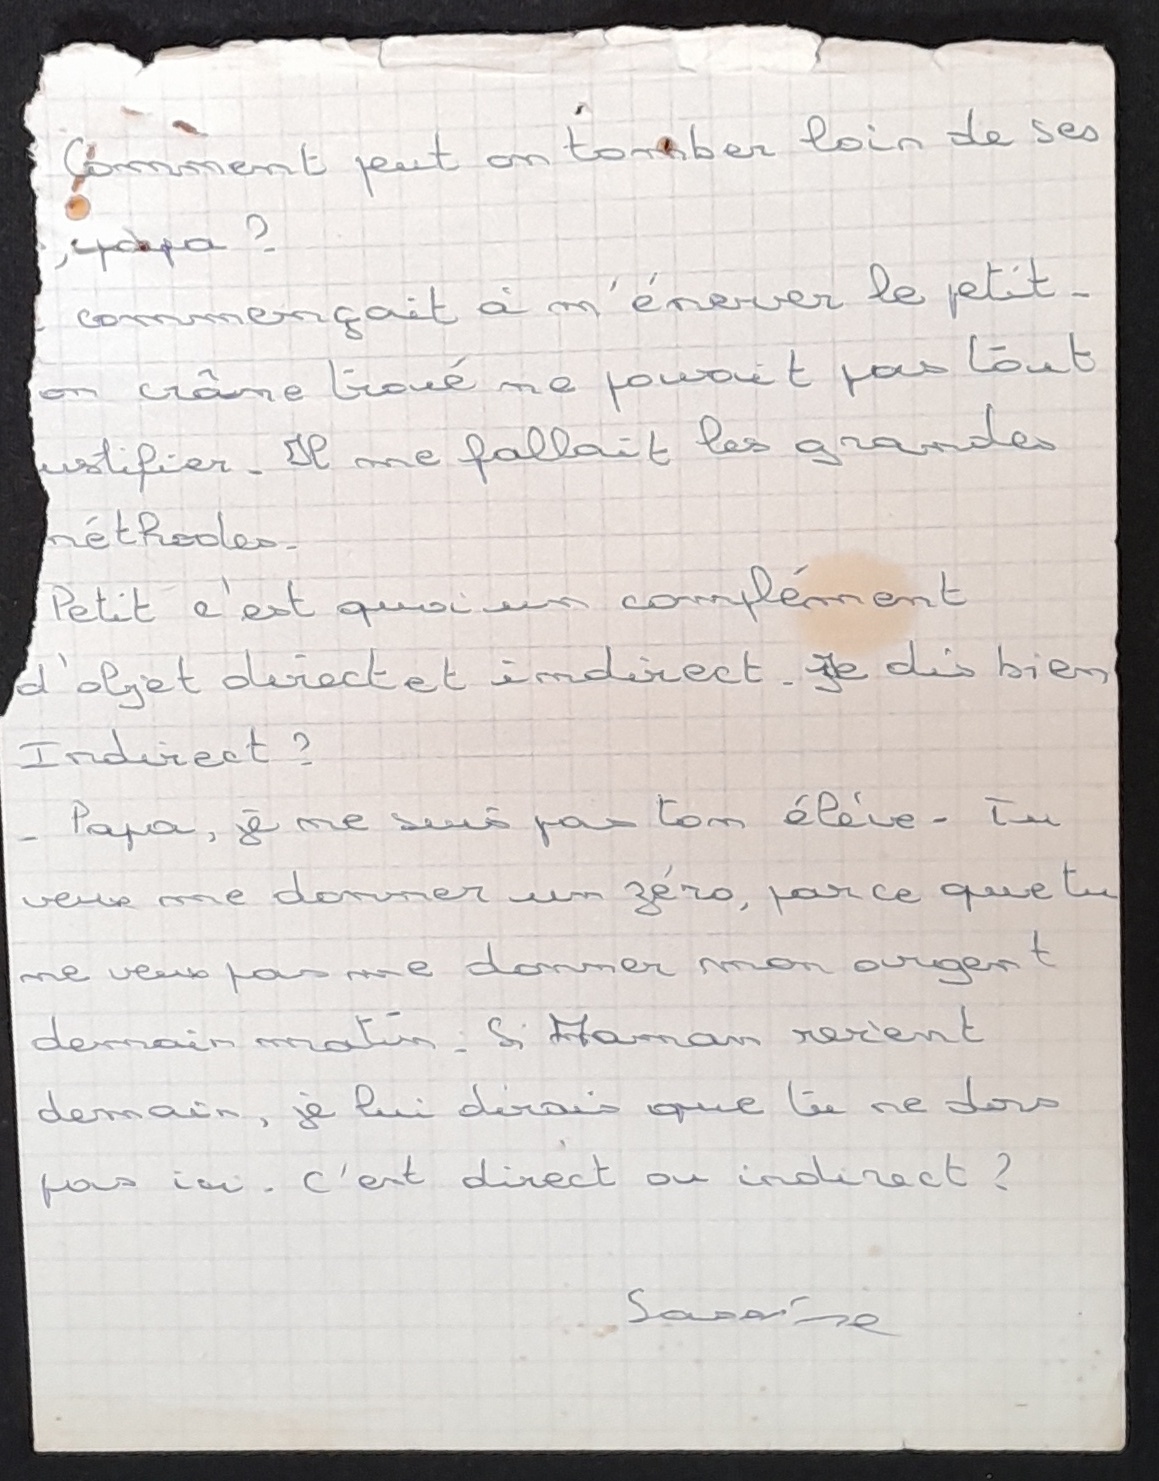 Comment peut on tomber loin de ses
, papa ?
commençait à m'énerver le petit.
on crâne troué ne pouvait pas tout
ustifier. Il me fallait les grandes
méthodes.
Petit c'est quoi un complément
d'objet direct et indirect. Je dis bien
Indirect ?
- Papa, je ne suis pas ton élève. Tu
veux me donner un zéro, parce que tu
ne veux pas me donner mon argent
demain matin. Si Maman revient
demain, je lui dirais que tu ne dors
pas ici. C'est direct ou indirect ?
Sassine